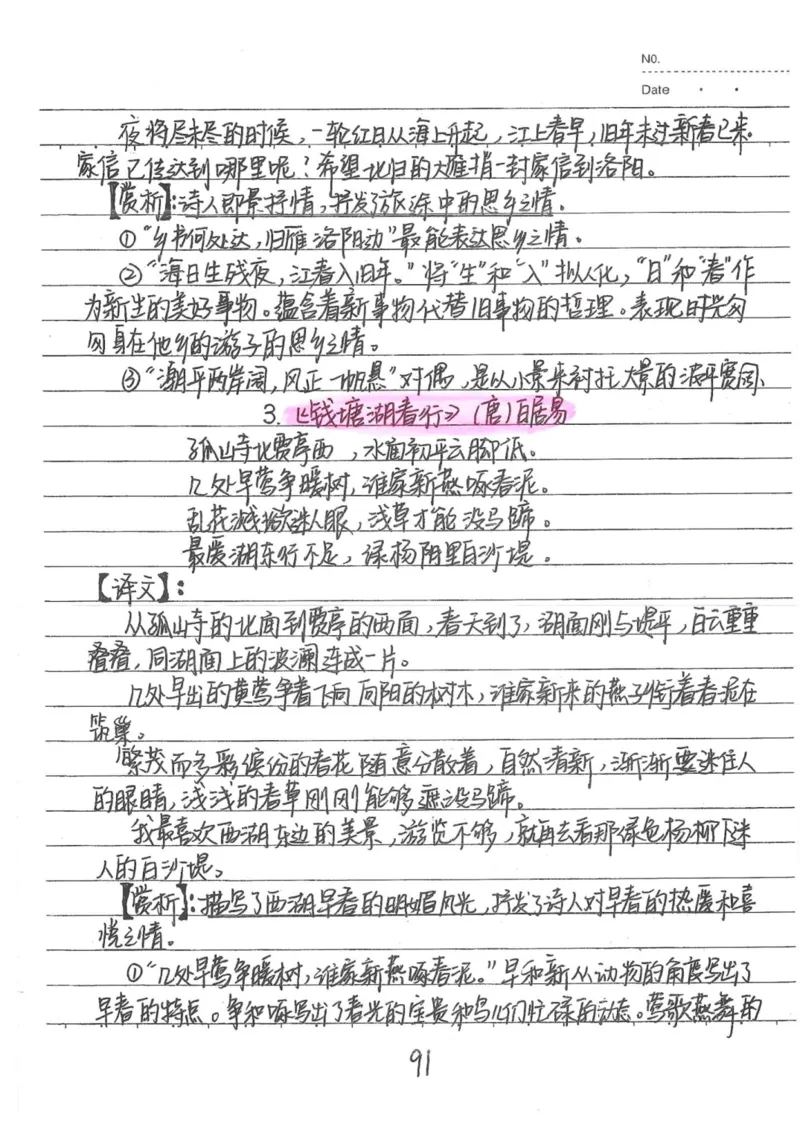 NO.
Date
夜将尽未尽的时候，一轮红日从海上升起，江上春早，旧年未过新春已来。
家信已传达到哪里呢？希望北归的大雁捎一封家信到洛阳。
【赏析】：诗人即景抒情，抒发了旅途中的思乡之情。
①“乡书何处达，归雁洛阳边”最能表达思乡之情。
②“海日生残夜，江春入旧年。”将“生”和“入”拟人化，“日”和“春”作
为新生的美好事物。蕴含着新事物代替旧事物的哲理。表现时光匆
匆身在他乡的游子的思乡之情。
③“潮平两岸阔，风正一帆悬”对偶，是以小景来衬托大景的波平宽阔、
3.《钱塘湖春行》（唐）白居易
孤山寺北贾亭西，水面初平云脚低。
几处早莺争暖树，谁家新燕啄春泥。
乱花渐欲迷人眼，浅草才能没马蹄。
最爱湖东行不足，绿杨阴里白沙堤。
【译文】：
从孤山寺的北面到贾亭的西面，春天到了，湖面刚与堤平，白云重重
叠叠，同湖面上的波澜连成一片。
几处早出的黄莺争着飞向向阳的树木，谁家新来的燕子衔着春泥在
筑巢。
繁茂而多彩缤纷的春花随意分散着，自然清新，渐渐要迷住人
的眼睛，浅浅的春草刚刚能够遮没马蹄。
我最喜欢西湖东边的美景，游览不够，就再去看那绿色杨柳下迷
人的白沙堤。
【赏析】：描写了西湖早春的明媚风光，抒发了诗人对早春的热爱和喜
悦之情。
①“几处早莺争暖树，谁家新燕啄春泥。”早和新从动物的角度写出了
早春的特点。争和啄写出了春光的宝贵和鸟儿们忙碌的动态。莺歌燕舞的
91